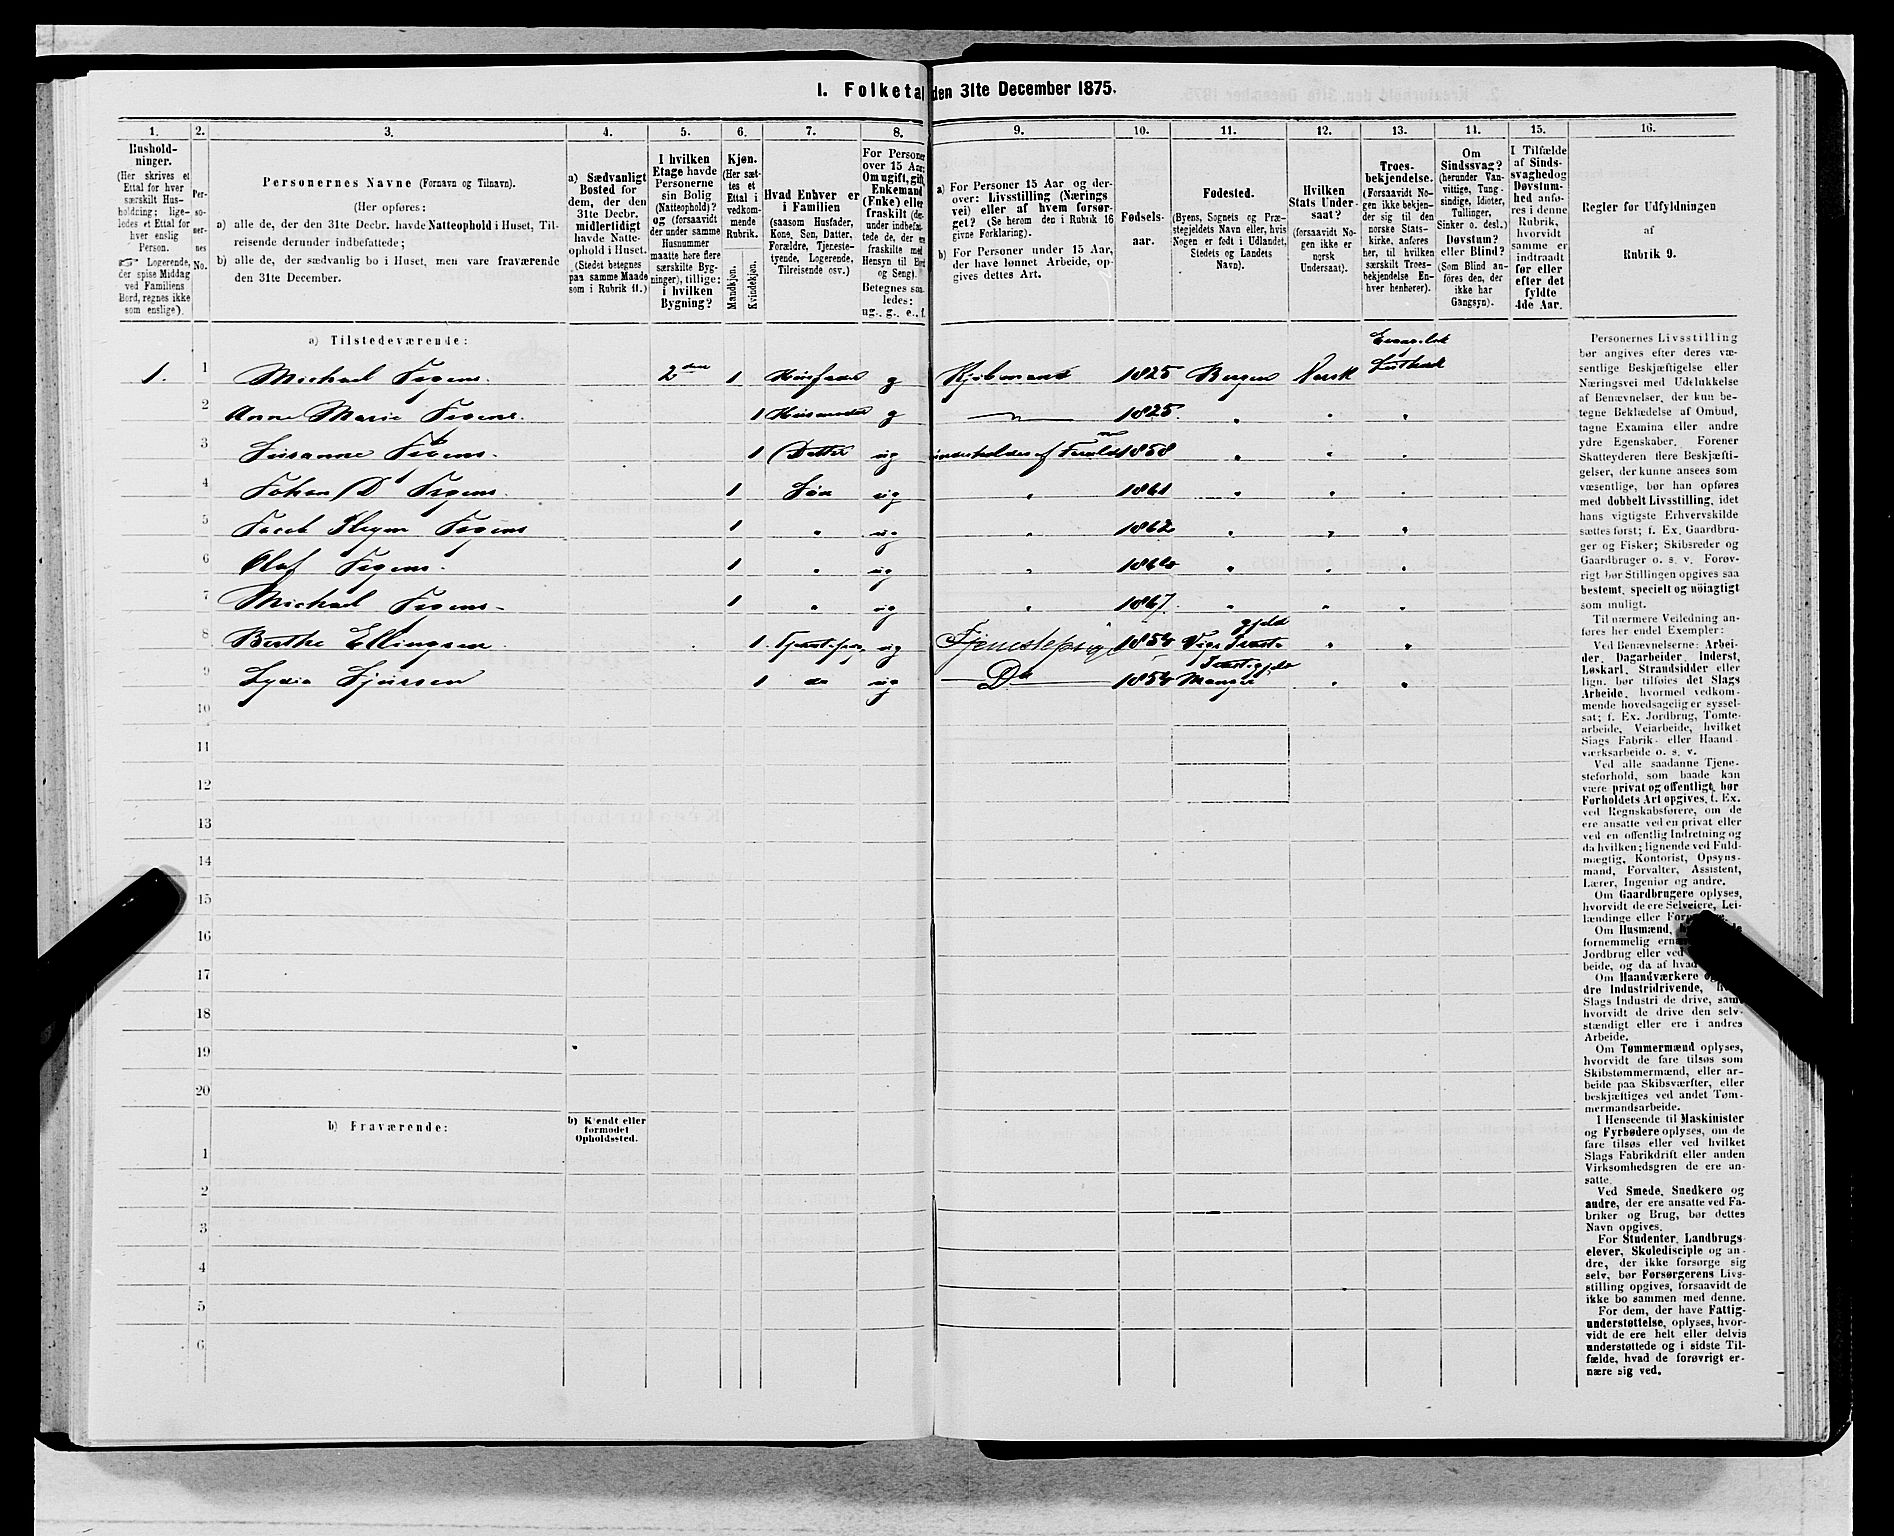 1. Folketal den 31te December 1875.
1. 2. 3. 4. 5. 6. 7. 8. 9. 10. 11. 12. 13. 14. 15. 16.
Hushold-
ninger.
(Her skrives et
Ettal for hver
særskilt Hus-
holdning; lige-
ledes et Ettal for
hver enslig
Person.
☞ Logerende,
der spise Middag
ved Familiens
Bord, regnes ikke
som enslige).
Per-
so-
ner-
nes
No.
Personernes Navne (Fornavn og Tilnavn).
(Her opføres:
a) alle de, der den 31te Decbr. havde Natteophold i Huset, Til-
reisende derunder indbefattede;
b) alle de, der sædvanlig bo i Huset, men vare fraværende
den 31te December.
a) Sædvanligt
Bosted for
dem, der den
31te Decbr.
midlertidigt
havde Natte-
ophold i Huset.
(Stedet betegnes
paa samme Maade
som i Rubrik 11.)
I hvilken
Etage havde
Personerne
sin Bolig
(Natteophold)?
og (forsaavidt
der under samme
Husnummer
maatte høre flere
særskilte Byg-
ninger), tillige:
i hvilken
Bygning?
Kjøn.
(Her sæt-
tes et
Ettal i
vedkom-
mende
Rubrik.
Mandkjøn.
Kvindekjøn.
Hvad Enhver er
i Familien
(saasom Husfader,
Kone, Søn, Datter,
Forældre, Tjeneste-
tyende, Logerende,
Tilreisende osv.)
For Personer
over 15 Aar:
Om ugift, gift,
Enkemand
(Enke) eller
fraskilt (der-
under indbefat-
tede de, der ere
fraskilte med
Hensyn til Bord
og Seng).
Betegnes saa-
ledes:
ug., g., e., f.
a) For Personer 15 Aar og der-
over: Livsstilling (Nærings-
vei) eller af hvem forsør-
get? (Se herom den i Rubrik 16
givne Forklaring).
b) For Personer under 15 Aar,
der have lønnet Arbeide, op-
gives dettes Art.
Fødsels-
aar.
Fødested.
(Byens, Sognets og Præ-
stegjeldets Navn eller, hvis
Nogen er født i Udlandet,
Stedets og Landets
Navn).
Hvilken
Stats Under-
saat?
(forsaavidt No-
gen ikke er
norsk
Undersaat).
Troes-
bekjendelse.
(Forsaavidt No-
gen ikke bekjen-
der sig til den
norske Stats-
kirke, anføres
her, til hvilken
særskilt Troes-
bekjendelse En-
hver henhører).
Om
Sindssvag?
(herunder Van-
vittige, Tung-
sindige, Idioter,
Tullinger,
Sinker o. desl.)
Døvstum?
eller Blind?
(Som Blind an-
føres den, der
ikke har
Gangsyn).
I Tilfælde
af Sinds-
svaghed og
Døvstum-
hed anfø-
res i denne
Rubrik,
hvorvidt
samme er
indtraadt
før eller
efter det
fyldte
4de Aar.
Regler for Udfyldningen
af
Rubrik 9.
a) Tilstedeværende:
1. 1 Michael Fegens. 2den 1 Husfader g Kjøbmand 1825 Bergen Norsk Luthersk
2 Anne Marie Fegens. 1 Husmoder g 1825. " " "
3 Susanne Fegens. 1 Datter ug underholdes af 1858 " " "
4 Johan D Fegens. 1 Søn ug " 1861 " " "
5 Jacob Fegens 1 " ug " 1862 " " "
6 Olaf Fegens. 1 " ug " " " "
7 Michael Fegens 1 " ug " 1867. " " "
8 Berthe Ellingsen 1 ug Tjenestepige 1854 " "
9 Lydia Sjursen 1 do ug Do 1854 Manger " "
10
11
12
13
14
15
16
17
18
19
20
b) Fraværende:
b) Kjendt eller
formodet
Opholdssted.
1
2
3
4
5
6
Personernes Livsstilling
bør angives efter deres væ-
sentlige Beskjæftigelse eller
Næringsvei med Udelukkelse
af Benævnelser, der kun be-
tegne Beklædelse af Ombud,
tagne Examina eller andre
ydre Egenskaber. Forener
Skatteyderen flere Beskjæfti-
gelser, der kunne ansees som
væsentlige, bør han opføres
med dobbelt Livsstilling, idet
hans vigtigste Erhvervskilde
sættes først; f. Ex. Gaardbru-
ger og Fisker; Skibsreder og
Gaardbruger o. s. v. Forøv-
rigt bør Stillingen opgives saa
bestemt, specielt og nøiagtigt
som muligt.
Til nærmere Veiledning an-
føres her endel Exempler:
Ved Benævnelserne: Arbei-
der, Dagarbeider, Inderst,
Løskarl, Strandsidder eller
lign. bør tilføies det Slags
Arbeide, hvormed vedkom-
mende hovedsagelig er syssel-
sat; f. Ex. Jordbrug, Tomte-
arbeide, Veiarbeide, hvilket
Slags Fabrik- eller Haand-
værksarbeide o. s. v.
Ved alle saadanne Tjene-
steforhold, som baade kan
være privat og offentligt, bør
Forholdets Art opgives, f. Ex.
ved Regnskabsførere, om de
ere ansatte ved en privat eller
ved en offentlig Indretning og
da hvilken; lignende ved Fuld-
mægtig, Kontorist, Opsyns-
mand, Forvalter, Assistent,
Lærer, Ingeniør og andre.
Om Gaardbrugere oplyses,
hvorvidt de ere Selveiere, Lei-
lændinge eller
Om Husmænd,
fornemmelig
Jordbrug eller ved
beide, og da af hvad
Om Haandværkere
dre Industridrivende,
Slags Industri de drive, samt
hvorvidt de drive den selv-
stændigt eller ere i andres
Arbeide.
Om Tømmermænd oplyses,
hvorvidt de fare tilsøs som
Skibstømmermænd, eller ar-
beide paa Skibsværfter, eller
beskjæftiges ved andet Tøm-
mermandsarbeide.
I Henseende til Maskinister
og Fyrbødere oplyses, om de
fare tilsøs eller ved hvilket
Slags Fabrikdrift eller anden
Virksomhedsgren de ere an-
satte.
Ved Smede, Snedkere og
andre, der ere ansatte ved Fa-
briker og Brug, bør dettes
Navn opgives.
For Studenter, Landbrugs-
elever, Skoledisciple og an-
dre, der ikke forsørge sig
selv, bør Forsørgerens Livs-
stilling opgives, forsaavidt de
ikke bo sammen med denne.
For dem, der have Fattig-
understøttelse, oplyses, hvor-
vidt de ere helt eller delvis
understøttede og i sidste Til-
fælde, hvad de forøvrigt er-
nære sig ved.